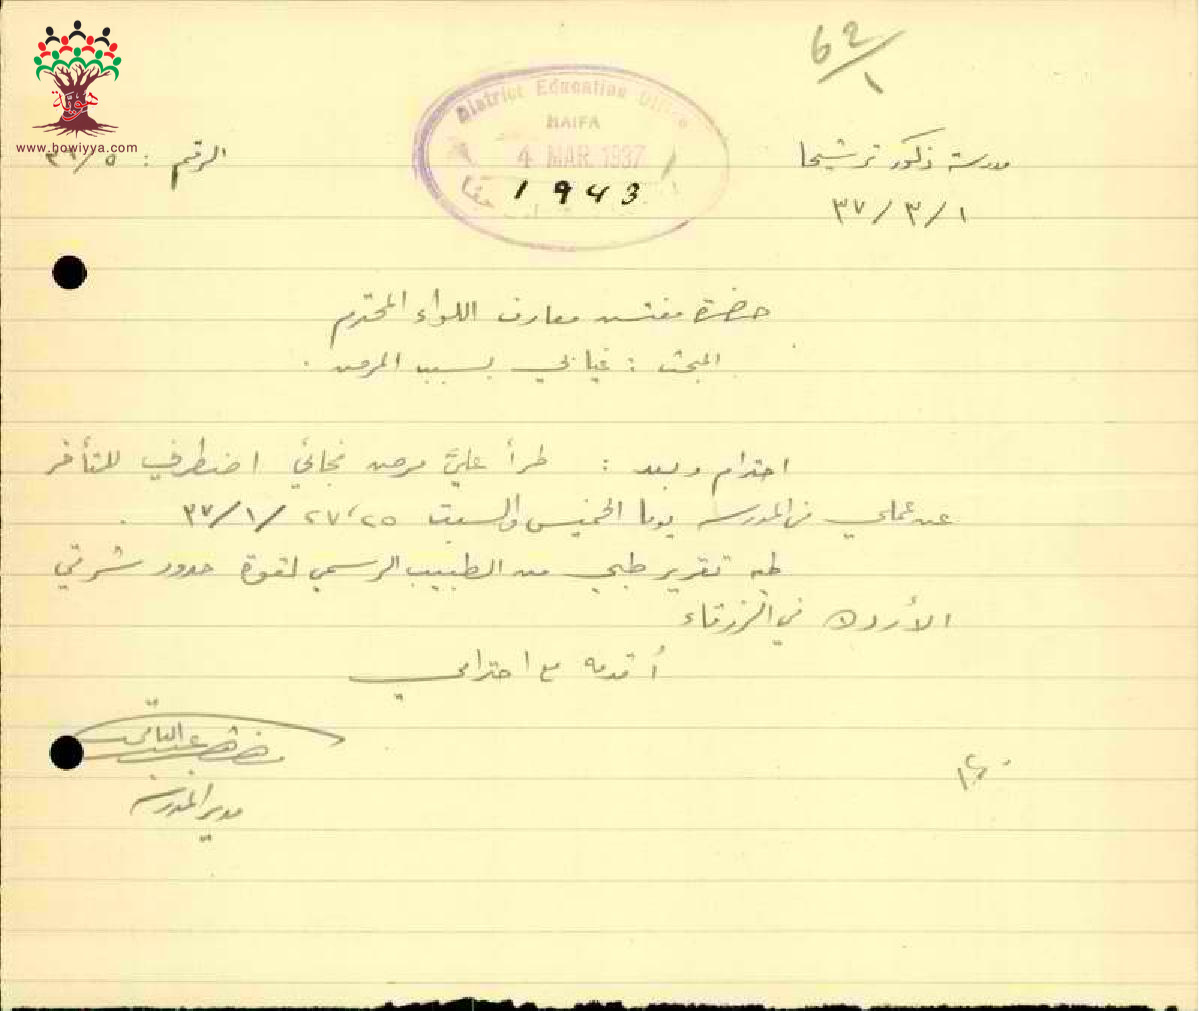 62/1
هوية
www.howiyya.com
District Education Office
HAIFA
4 MAR. 1937
1943
مدرسة ذكور ترشيحا
الرقم : ٣٦/٥
٣٧/٣/١
حضرة مفتش معارف اللواء المحترم
المبحث : غيابي بسبب المرض .
احترام وبعد : طرأ عليّ مرض فجائي اضطرني للتأخر
عن عملي في المدرسه يوما الخميس والسبت ٢٥، ٢٧ /١/ ٣٧ .
طيه تقرير طبي من الطبيب الرسمي لقوة حدود شرقي
الأردن في الزرقاء
أقدمه مع احترامي
مدير المدرسه